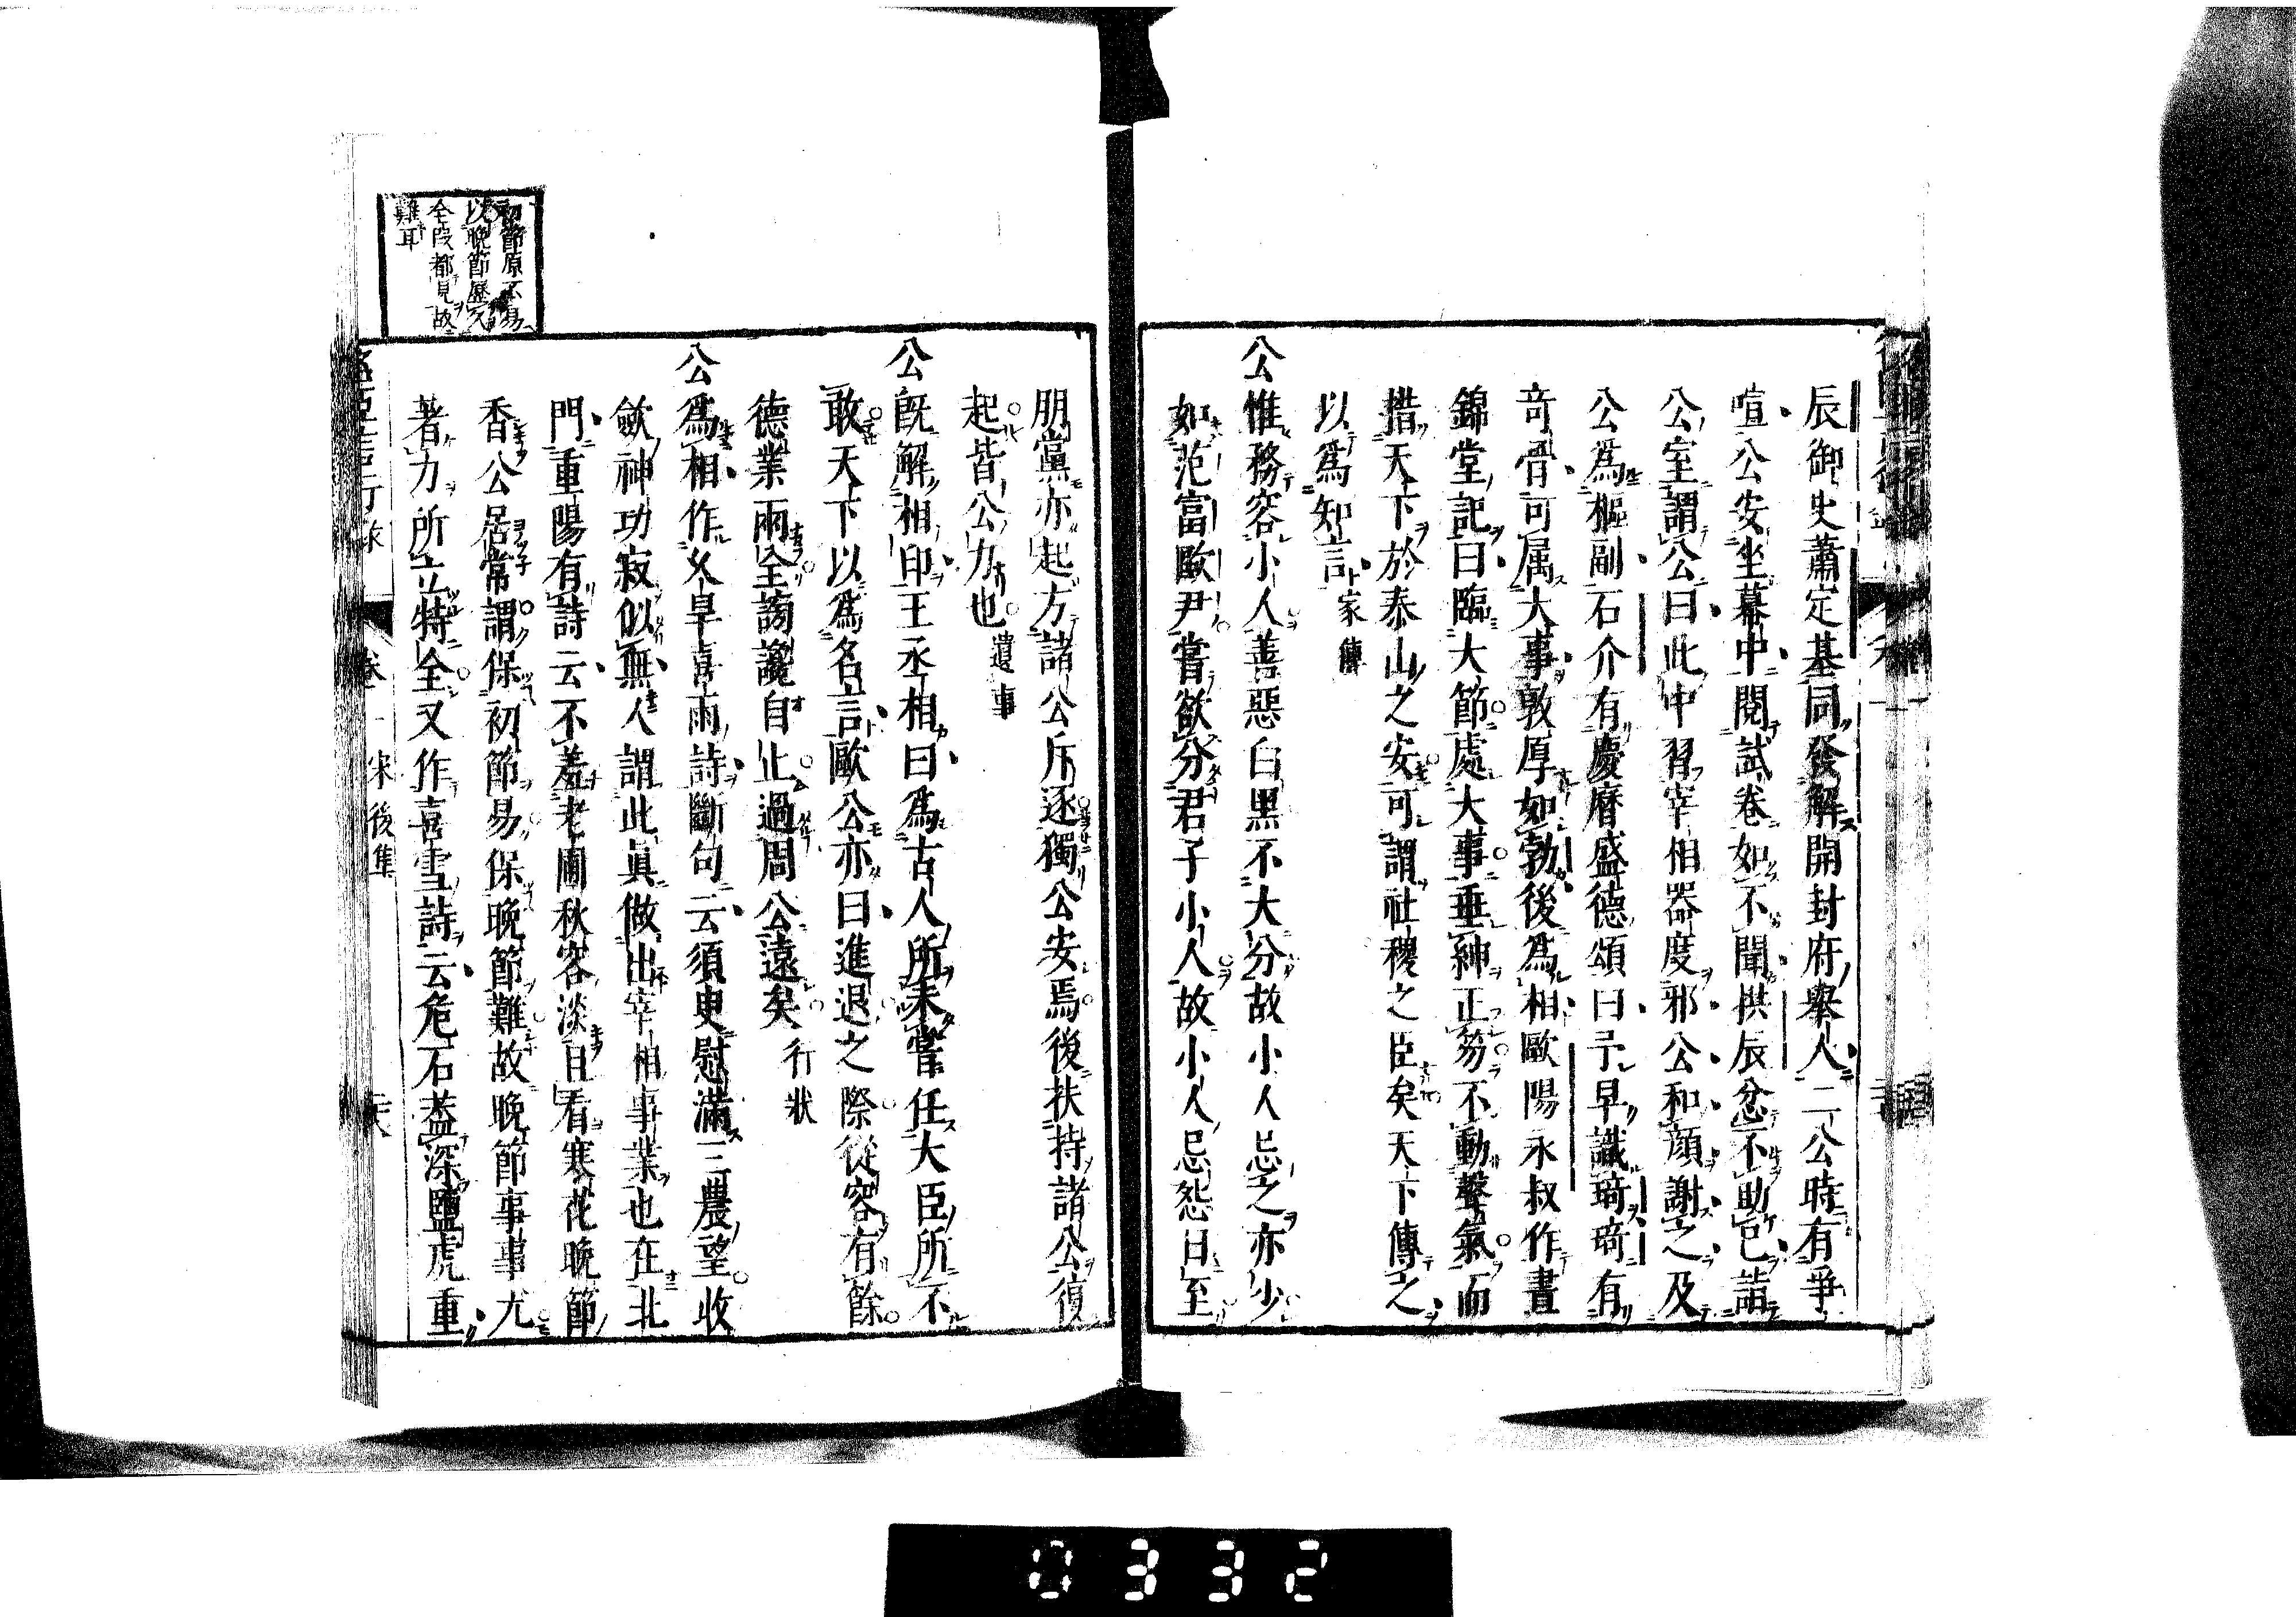 辰御史蕭定基同發解開封府舉人二公時有爭
喧公安坐幕中閱試卷如不聞拱辰忿不助已詣
公室謂公曰此中習宰相器度邪公和顔謝之及
公爲樞副石介有慶曆盛德頌曰予早識琦琦有
奇骨可属大事敦厚如勃後爲相歐陽永叔作晝
錦堂記曰臨大節處大事垂紳正笏不動聲氣而
措天下於泰山之安可謂社稷之臣矣天下傳之
以爲知言家傳
公惟務容小人善惡白黒不大分故小人忌之亦少
如范富歐尹嘗欲分君子小人故小人忌怨日至
朋黨亦起方諸公斥逐獨公安焉後扶持諸公復
起皆公力也遺事
公旣解相印王丞相曰爲古人所未嘗任大臣所不
敢天下以爲名言歐公亦曰進退之際從容有餘
德業兩全謗讒自止過周公遠矣行狀
公爲相作久旱喜雨詩斷句云須臾慰滿三農望收
斂神功寂似無人謂此眞做出宰相事業也在北
門重陽有詩云不羞老圃秋容淡且看寒花晚節
香公居常謂保初節易保晚節難故晚節事事尤
著力所立特全又作喜雪詩云危石蓋深鹽虎重
初節原不易
以晩節歷久
全段都見故
難耳
卷一 宋後集
0332